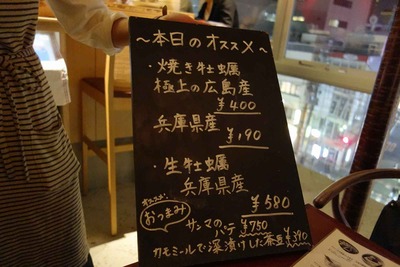 ～本日のオススメ～
・焼き牡蠣
極上の広島産
¥400
兵庫県産
¥190
・生牡蠣
兵庫県産
¥580
オススメ
おつまみ
サンマの
パテ ¥750
カモミールで深漬けした茶豆 ¥390